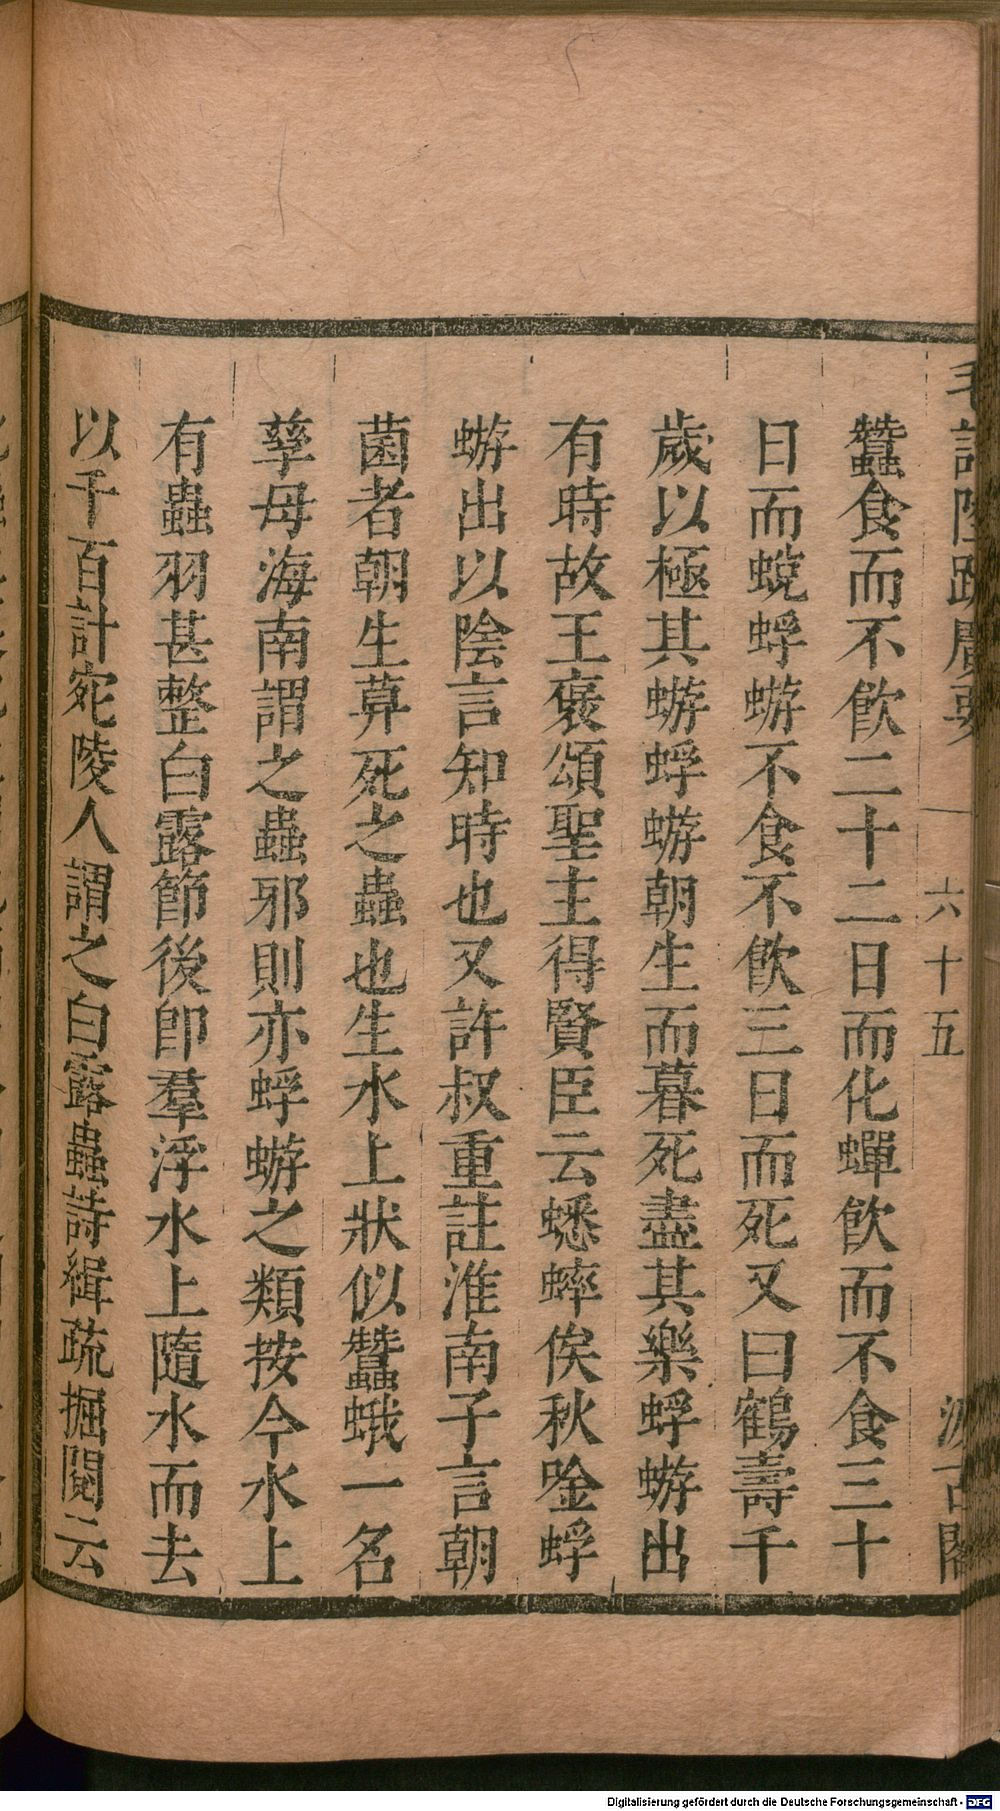 毛詩陸疏廣要
六十五
汲古閣
蠶食而不飮二十二日而化蟬飮而不食三十
日而蛻蜉蝣不食不飮三日而死又曰鶴壽千
歲以極其蝣蜉蝣朝生而暮死盡其樂蜉蝣出
有時故王褒頌聖主得賢臣云蟋蟀俟秋唫蜉
蝣出以陰言知時也又許叔重註淮南子言朝
菌者朝生莫死之蟲也生水上狀似蠶蛾一名
孳母海南謂之蟲邪則亦蜉蝣之類按今水上
有蟲羽甚整白露節後卽羣浮水上隨水而去
以千百計宛陵人謂之白露蟲詩緝疏掘閱云
Digitalisierung gefördert durch die Deutsche Forschungsgemeinschaft - DFG